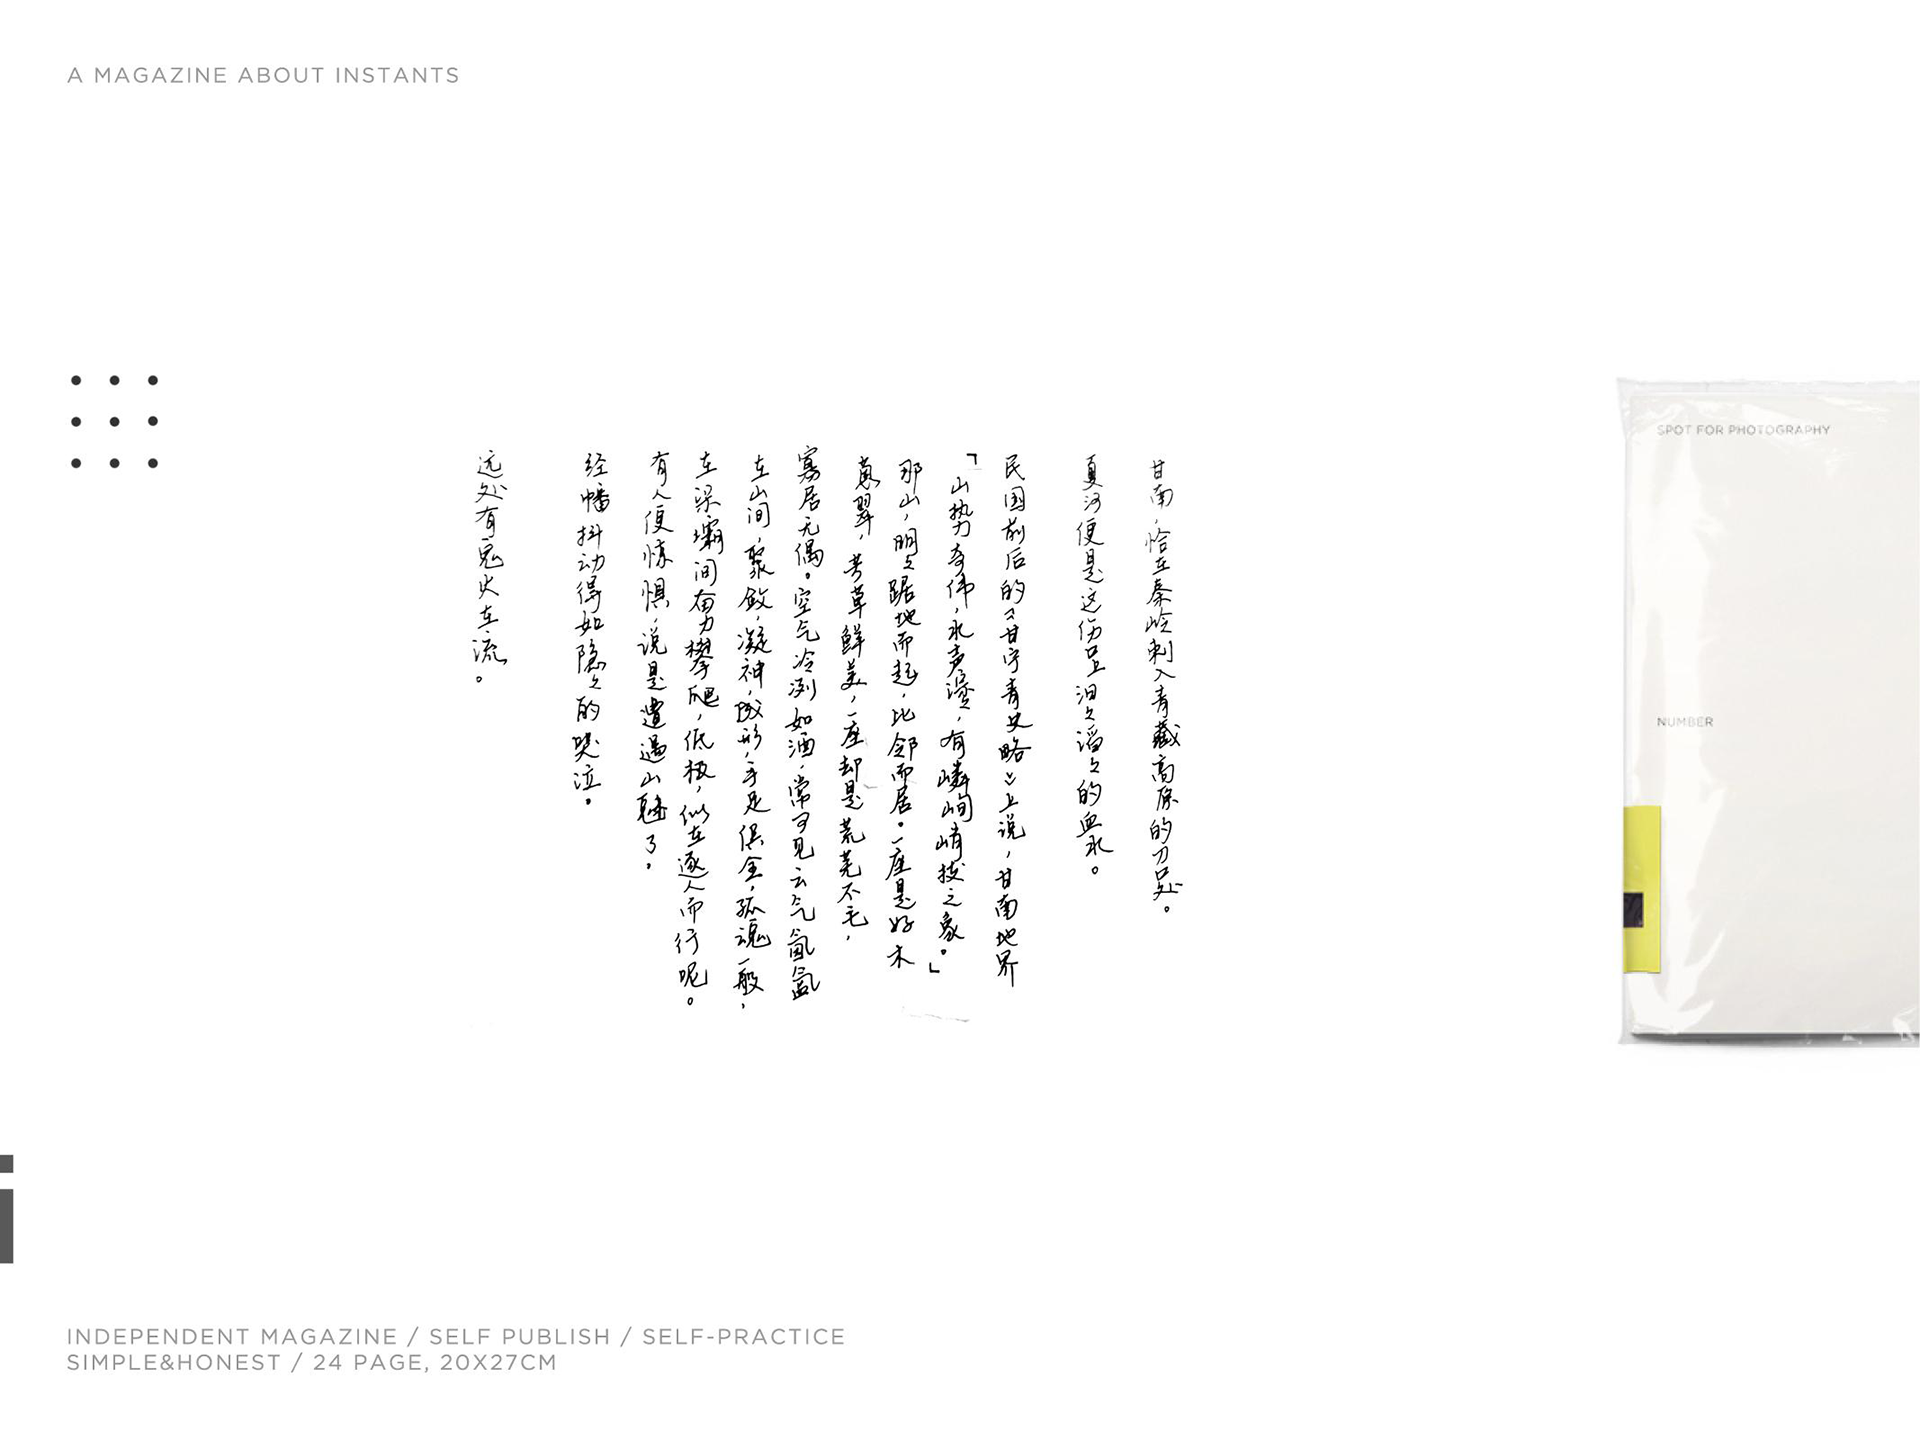 A MAGAZINE ABOUT INSTANTS
甘南，恰在秦岭刺入青藏高原的刀口处。
夏河便是这伤口上汩々滔々的血水。
民国前后的《甘宁青史略》上说，甘南地界
「山势奇伟，水声潺々，有嶙峋峭拔之象。」
那山，明々踞地而起，比邻而居。一座是好木
葱翠，芳草鲜美，一座却是荒芜不毛，
寡居无偶。空气冷冽如酒，常可见云气氤氲
在山间，聚敛，凝神，成形，手足俱全，孤魂一般，
在梁壩间奋力攀爬，低极，似在逐人而行呢。
有人便惊惧，说是遭遇山魅了。
经幡抖动得如隐々的哭泣。
远处有鬼火在流。
SPOT FOR PHOTOGRAPHY
NUMBER
i
INDEPENDENT MAGAZINE / SELF PUBLISH / SELF-PRACTICE
SIMPLE&HONEST / 24 PAGE, 20X27CM